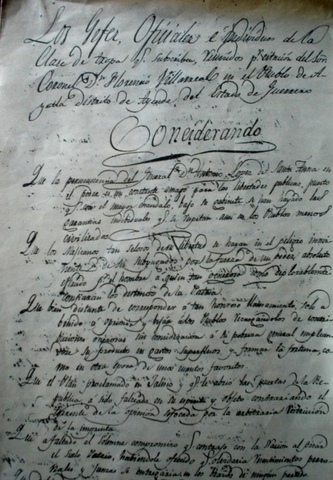 Los Jefes, Oficiales é individuos de la
Clase de tropa q. subscriben, reunidos p.r citacion del Señor
Coronel D.n Florencio Villarreal en el Pueblo de A-
yutla distrito de Ayutla, del Estado de Guerrero
Considerando
Que la permanencia del General D.n Antonio Lopez de Santa Anna en
el poder es un constante amago para las libertades publicas, puesto
q. con el mayor escandalo, bajo su gobierno se han hollado las
garantias individuales q. se respetan aun en los Paises menos
civilizados
Que los Mexicanos tan celosos de su libertad se hayan en el peligro inmi-
nente de ser subyugados por la fuerza de un poder absoluto
ejercido p.r el hombre a quien tan
confiaron los destinos de la Patria
Que bien distante de corresponder á tan honroso llamamiento, solo á
venido á oprimir y bejar los Pueblos recargandolos de contri-
buciones onerosas sin consideracion á la pobreza general, emplean-
dose su producto en gastos superfluos y formar la fortuna, co-
mo en otra epoca de unos cuantos favoritos
Que el Plan proclamado en Jalisco y q. le abrio las puertas de la Re-
publica á sido falseado en su espiritu y objeto contrariando el
torrente de la opinion sofocada por la arbitraria restriccion
de la imprenta
Que á faltado al solemne compromiso q. contrajo con la Nacion al pisar
el suelo Patrio, habiendole ofrecido q. olvidaria resentimientos perso-
nales y jamas se entregaria en los brazos de ningun partido